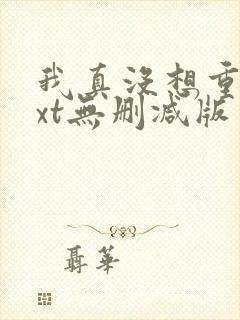 我真没想重
xt无删减版
聂华